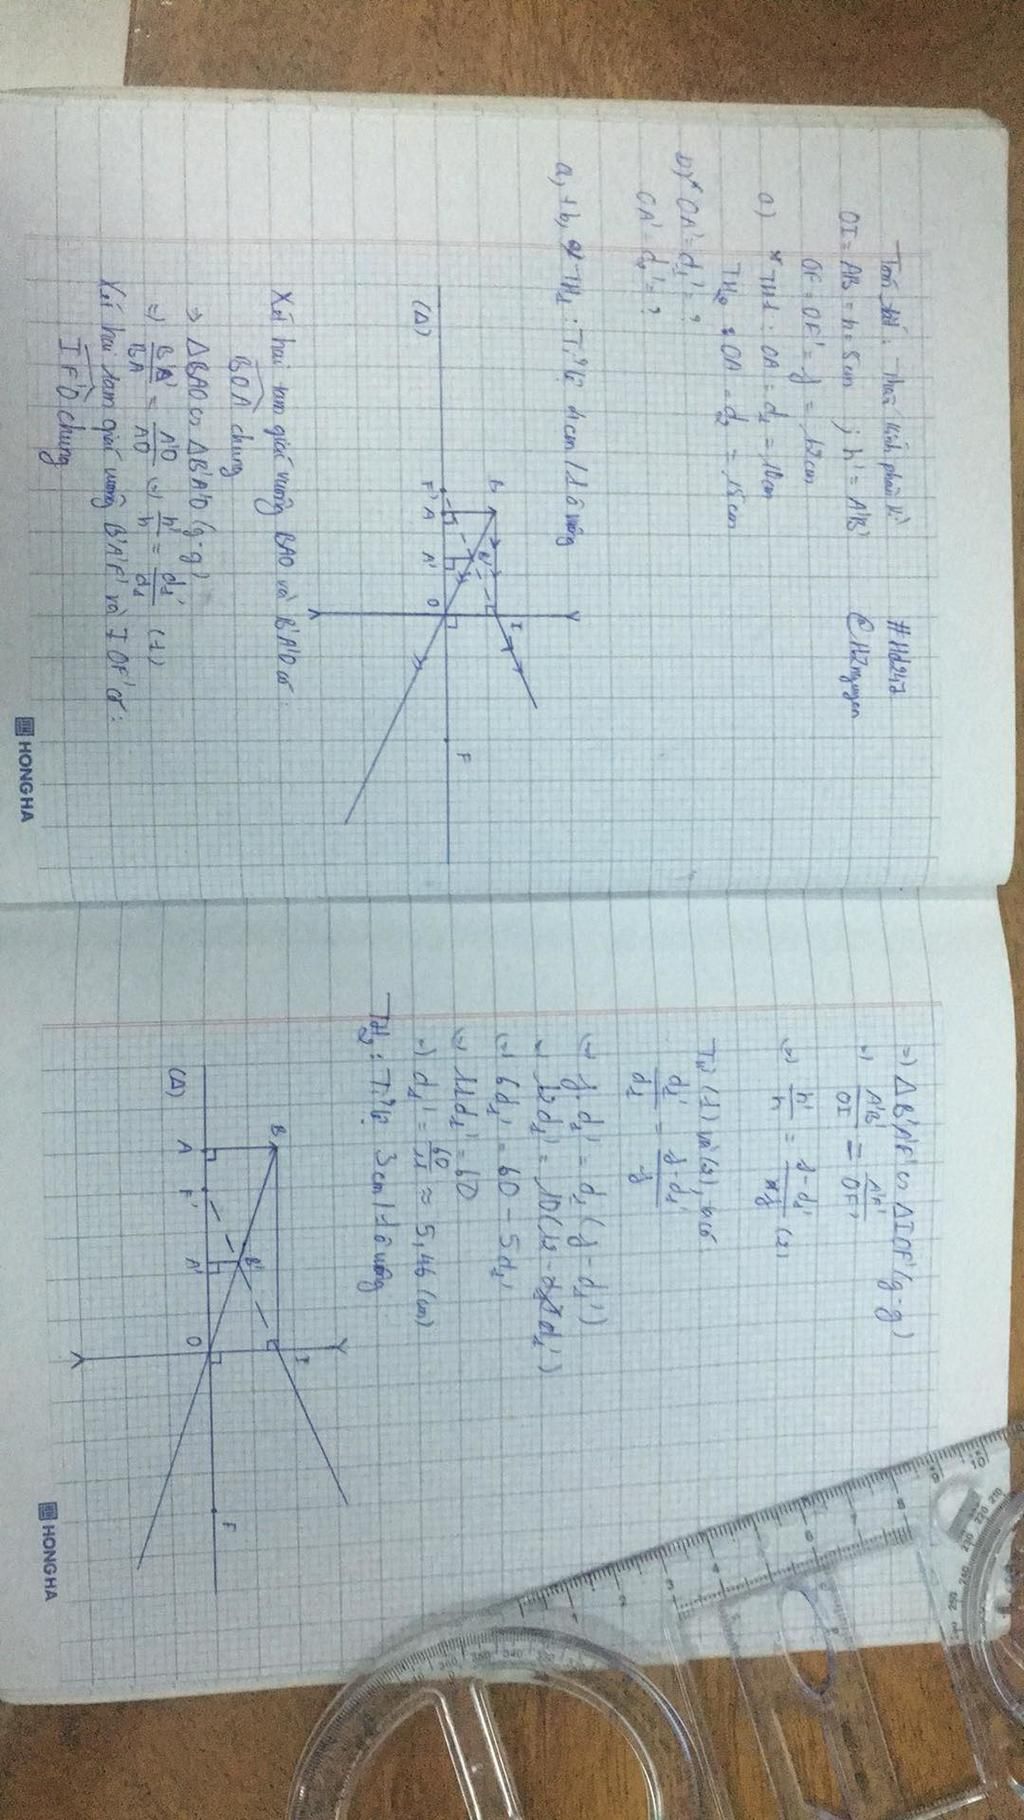 Tóm tắt: Thấu kính phân kì
#Hd247
OI = AB = h = 5cm ; h' = A'B'
OF = OF' = f = 12cm
a) * TH1 : OA = d₁ = 10cm
TH₂ : OA = d₂ = 15cm
b) * OA' = d₁' = ?
OA' = d₂' = ?
a, + b, TH₁ : Tỉ lệ 1cm / 1 ô vuông
(Δ) F' A A' O F
B B' I
Xét hai tam giác vuông BAO và B'A'O có :
BOA chung
=> ΔBAO ∽ ΔB'A'O (g-g)
=> B'A'/BA = A'O/AO => h'/h = d₁'/d₁ (1)
Xét hai tam giác vuông B'A'F' và IOF' có :
IF'O chung
HONG HA
=> ΔB'A'F' ∽ ΔIOF' (g-g)
=> A'B'/OI = A'F'/OF'
=> h'/h = f-d₁'/f (2)
Từ (1) và (2), có :
d₁'/d₁ = f-d₁'/f
=> f.d₁' = d₁(f-d₁')
=> 12d₁' = 10(12-d₁')
=> 6d₁' = 60 - 5d₁'
=> 11d₁' = 60
=> d₁' = 60/11 ≈ 5,46 (cm)
TH₂ : Tỉ lệ 3cm / 1 ô vuông
B B' I
(Δ) A F' A' O F
HONG HA